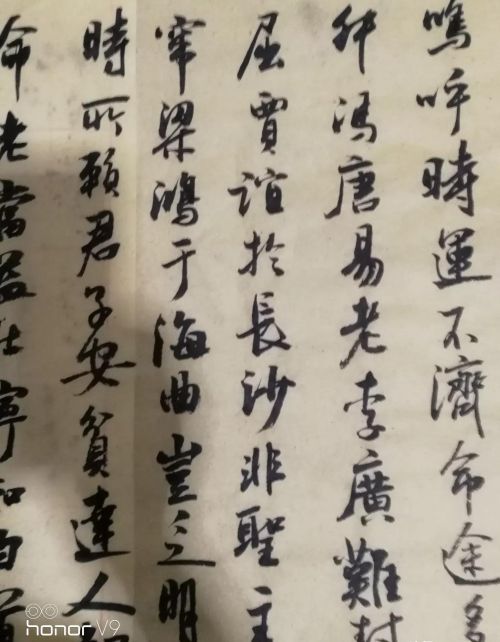 嗚呼時運不濟命途多
舛馮唐易老李廣難封
屈賈誼於長沙非聖主
竄梁鴻于海曲豈乏明
時所賴君子安貧達人
命老當益壯寧知白首
honor V9